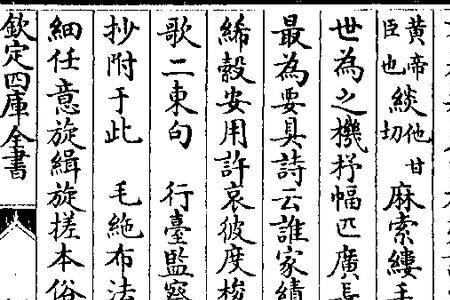 黄帝臣也緂他甘切麻索縷手
世為之機杼幅匹廣長
最為要具詩云誰家績
絺縠安用許哀彼度梭
歌二東句　行臺監察
抄附于此　毛絁布法
細任意旋緝旋搓本俗
欽定四庫全書